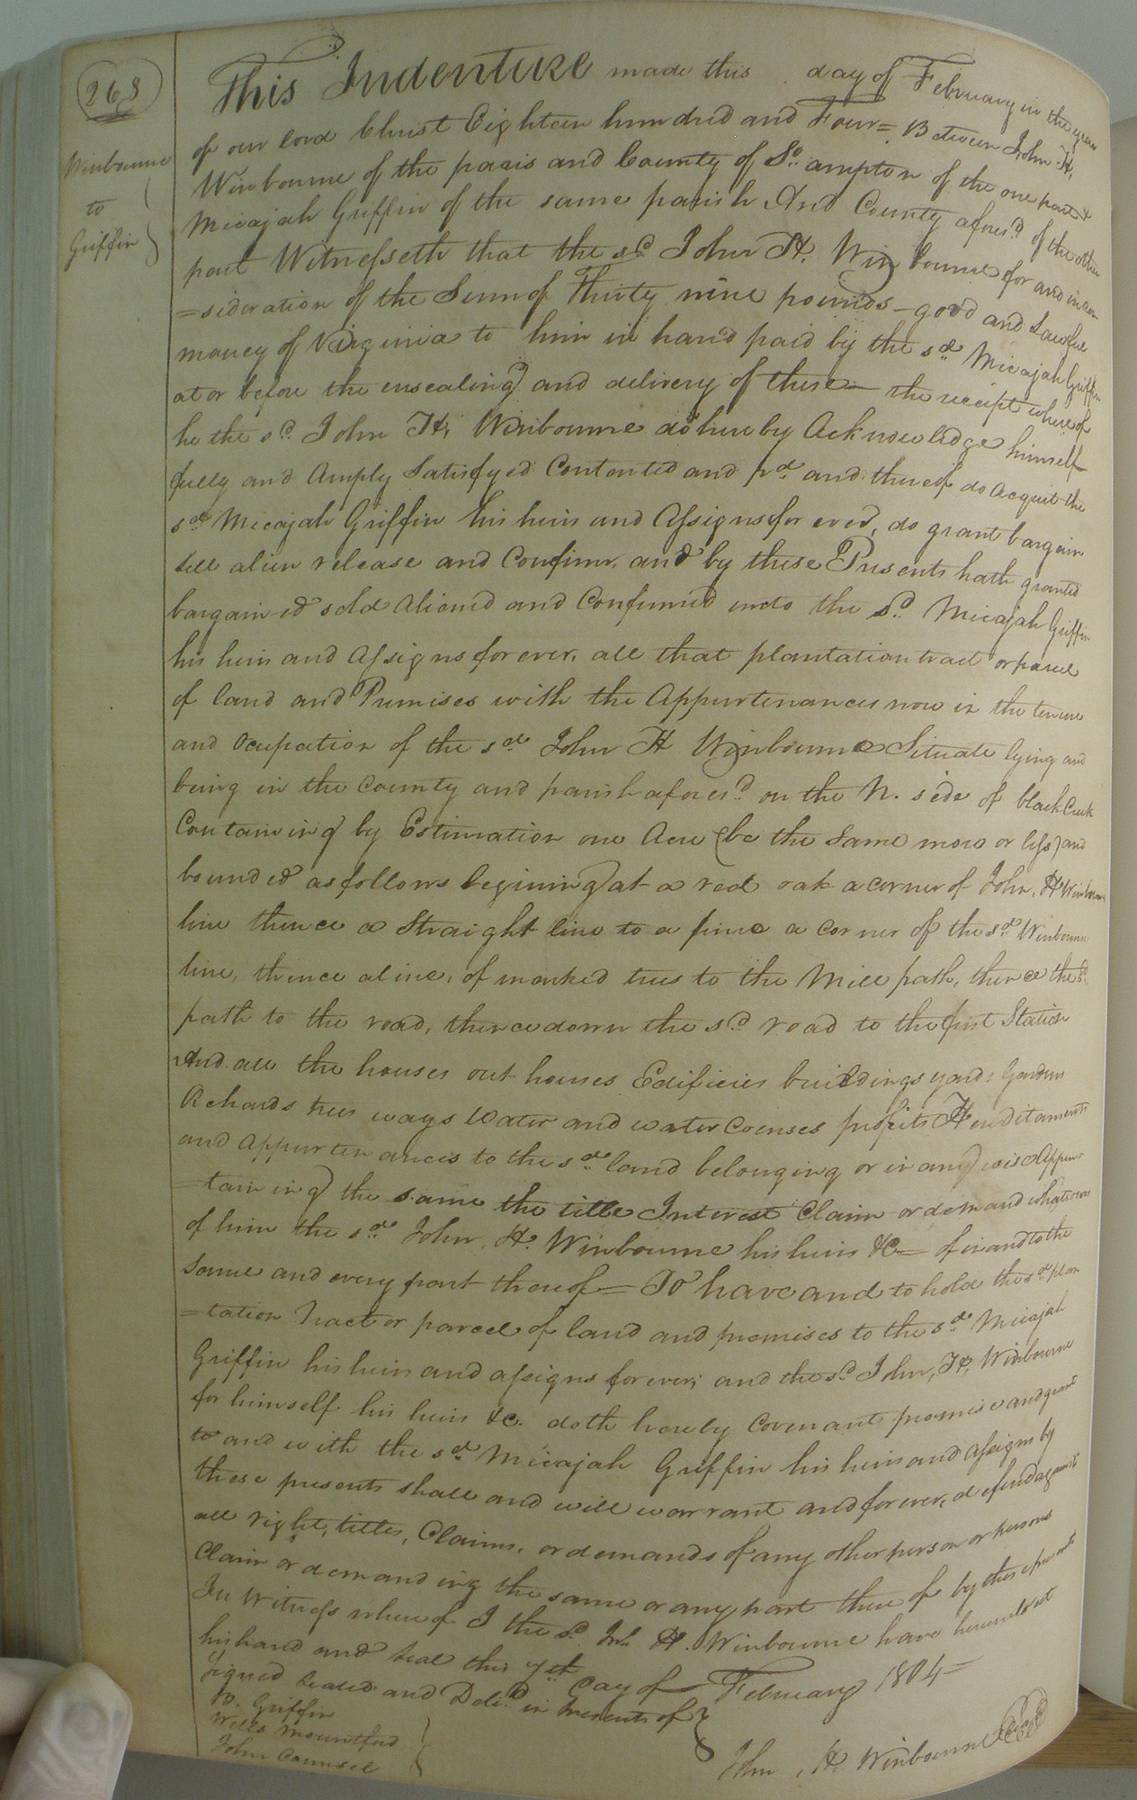 268
Winbourne
to
Griffin
This Indenture made this day of February in the year
of our lord Christ Eighteen hundred and Four = Between John H.
Winbourne of the paris and County of So.ampton of the one part &
Micajah Griffin of the same parish And County afores.d of the other
part Witnesseth that the sd John H. Winbourne for and in con
=sideration of the Sum of Thirty nine pounds – good and Lawful
money of Virginia to him in hand paid by the sd Micajah Griffin
at or before the ensealing and delivery of these – the receipt whereof
he the sd John H. Winbourne do hereby Acknowledge himself
fully and Amply Satisfyed Contented and pd and thereof do Acquit the
sd Micajah Griffin his heirs and Assigns for ever, do grant bargain
sell alien release and Confirm, and by these Presents hath granted
bargained sold Aliened and Confirmed unto the sd Micajah Griffin
his heirs and Assigns forever, all that plantation tract or parcel
of land and Premises with the Appurtenances now in the tenure
and Ocupation of the sd John H Winbourne Situate lying and
being in the County and parish afores.d on the N. side of black Creek
Containing by Estimation one Acre (be the Same more or less) and
bounded as follows begining at a red oak a corner of John, H Winbourn
line thence a Straight line to a pine a corner of the sd Winbourne
line, thence a line, of marked trees to the Mill path, thence the sd
path to the road, thence down the sd road to the first Station
And all the houses out houses Edificies buildings yards Gardens
Achards trees ways Water and water Courses profits Hereditaments
and Appurtenances to the sd land belonging or in any wise Appur
=taining the same the title Interest Claim or demand whatsoever
of him the sd John, H. Winbourne his heirs &c = of in and to the
same and every part thereof = To have and to hold the sd plan
=tation Tract or parcel of land and premises to the sd Micajah
Griffin his heirs and assigns forever; and the sd John, H, Winbourne
for himself his heirs &c. doth hereby Covenant promise and grant
to and with the sd Micajah Griffin his heirs and Assigns by
these presents shall and will warrant and forever, defend against
all right, titles, Claims, or demands of any other person or persons
Claim or demanding the same or any part there of by these presents
In Witness where of I the sd Jn H. Winbourne have hereunto set
his hand and seal this 7th Day of February 1804 =
Signed Sealed and Deld in Presents of
B. Griffin
Wills Mountford
John Counsel
John, H. Winbourne Seal